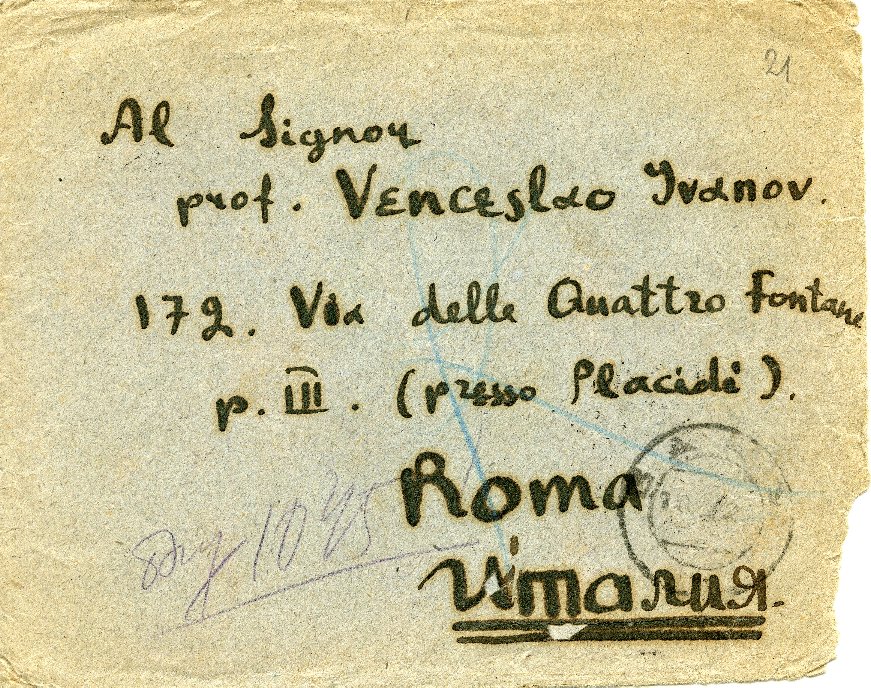 21
Al Signor
prof. Venceslao Ivanov.
172. Via delle Quattro Fontane
p. III. (presso Placidi).
Roma
Италия.